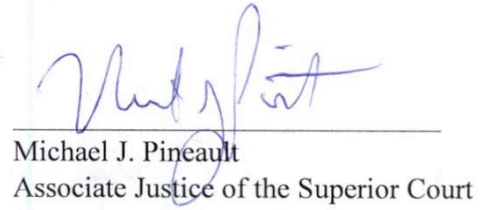 Michael J. Pineault
Associate Justice of the Superior Court